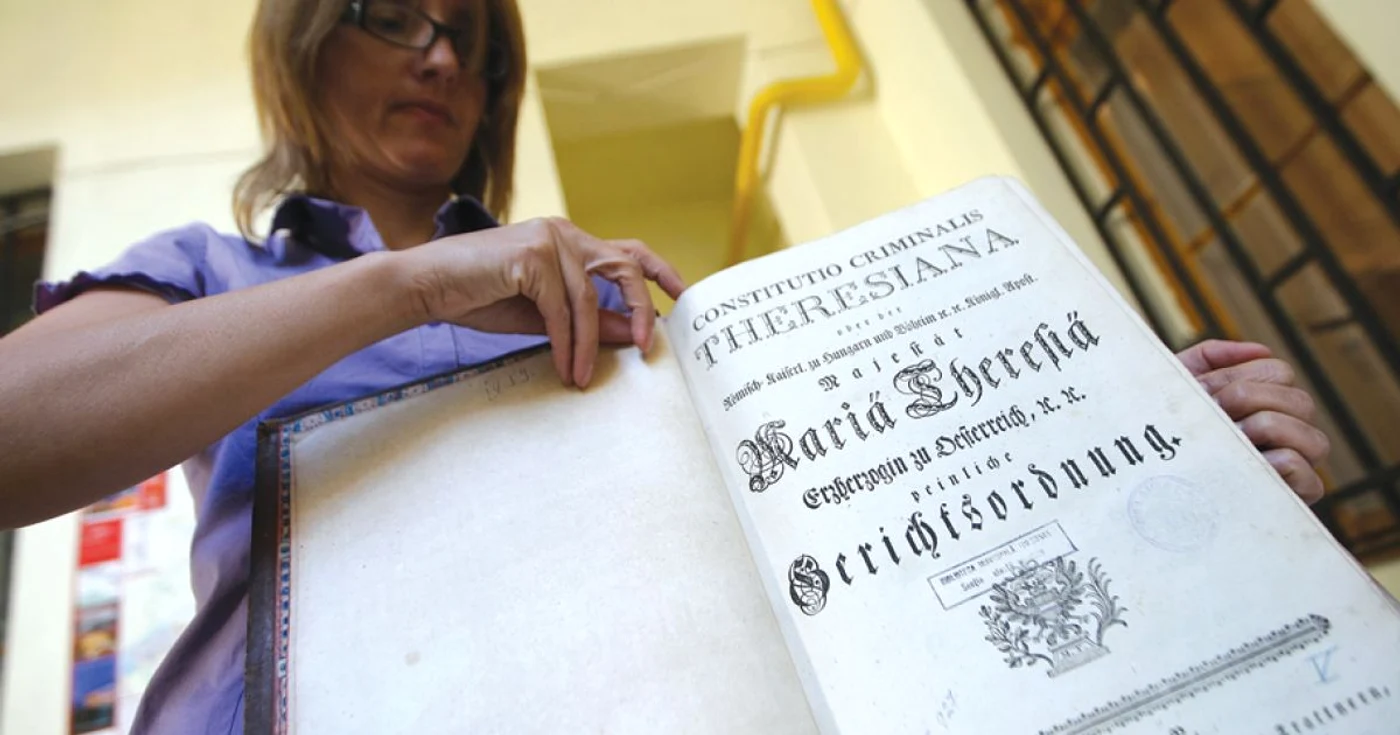 CONSTITUTIO CRIMINALIS
THERESIANA
oder der
Römisch-Kaiserl. zu Hungarn und Böheim ꝛc. ꝛc. Königl. Apost.
Majestät
Mariä Theresiä
Erzherzogin zu Oesterreich, ꝛc. ꝛc.
peinliche
Gerichtsordnung.
BIBLIOTECA
V
Trattnern,